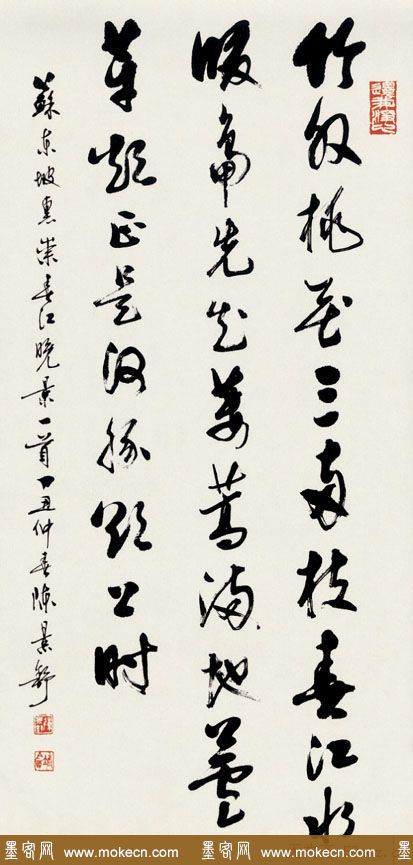 竹外桃花三两枝春江水
暖鸭先知蒌蒿满地芦
芽短正是河豚欲上时
蘇東坡惠崇春江晚景一首丁丑仲春陳景舒
墨客网 www.mokecn.com 墨客网 www.mokecn.com